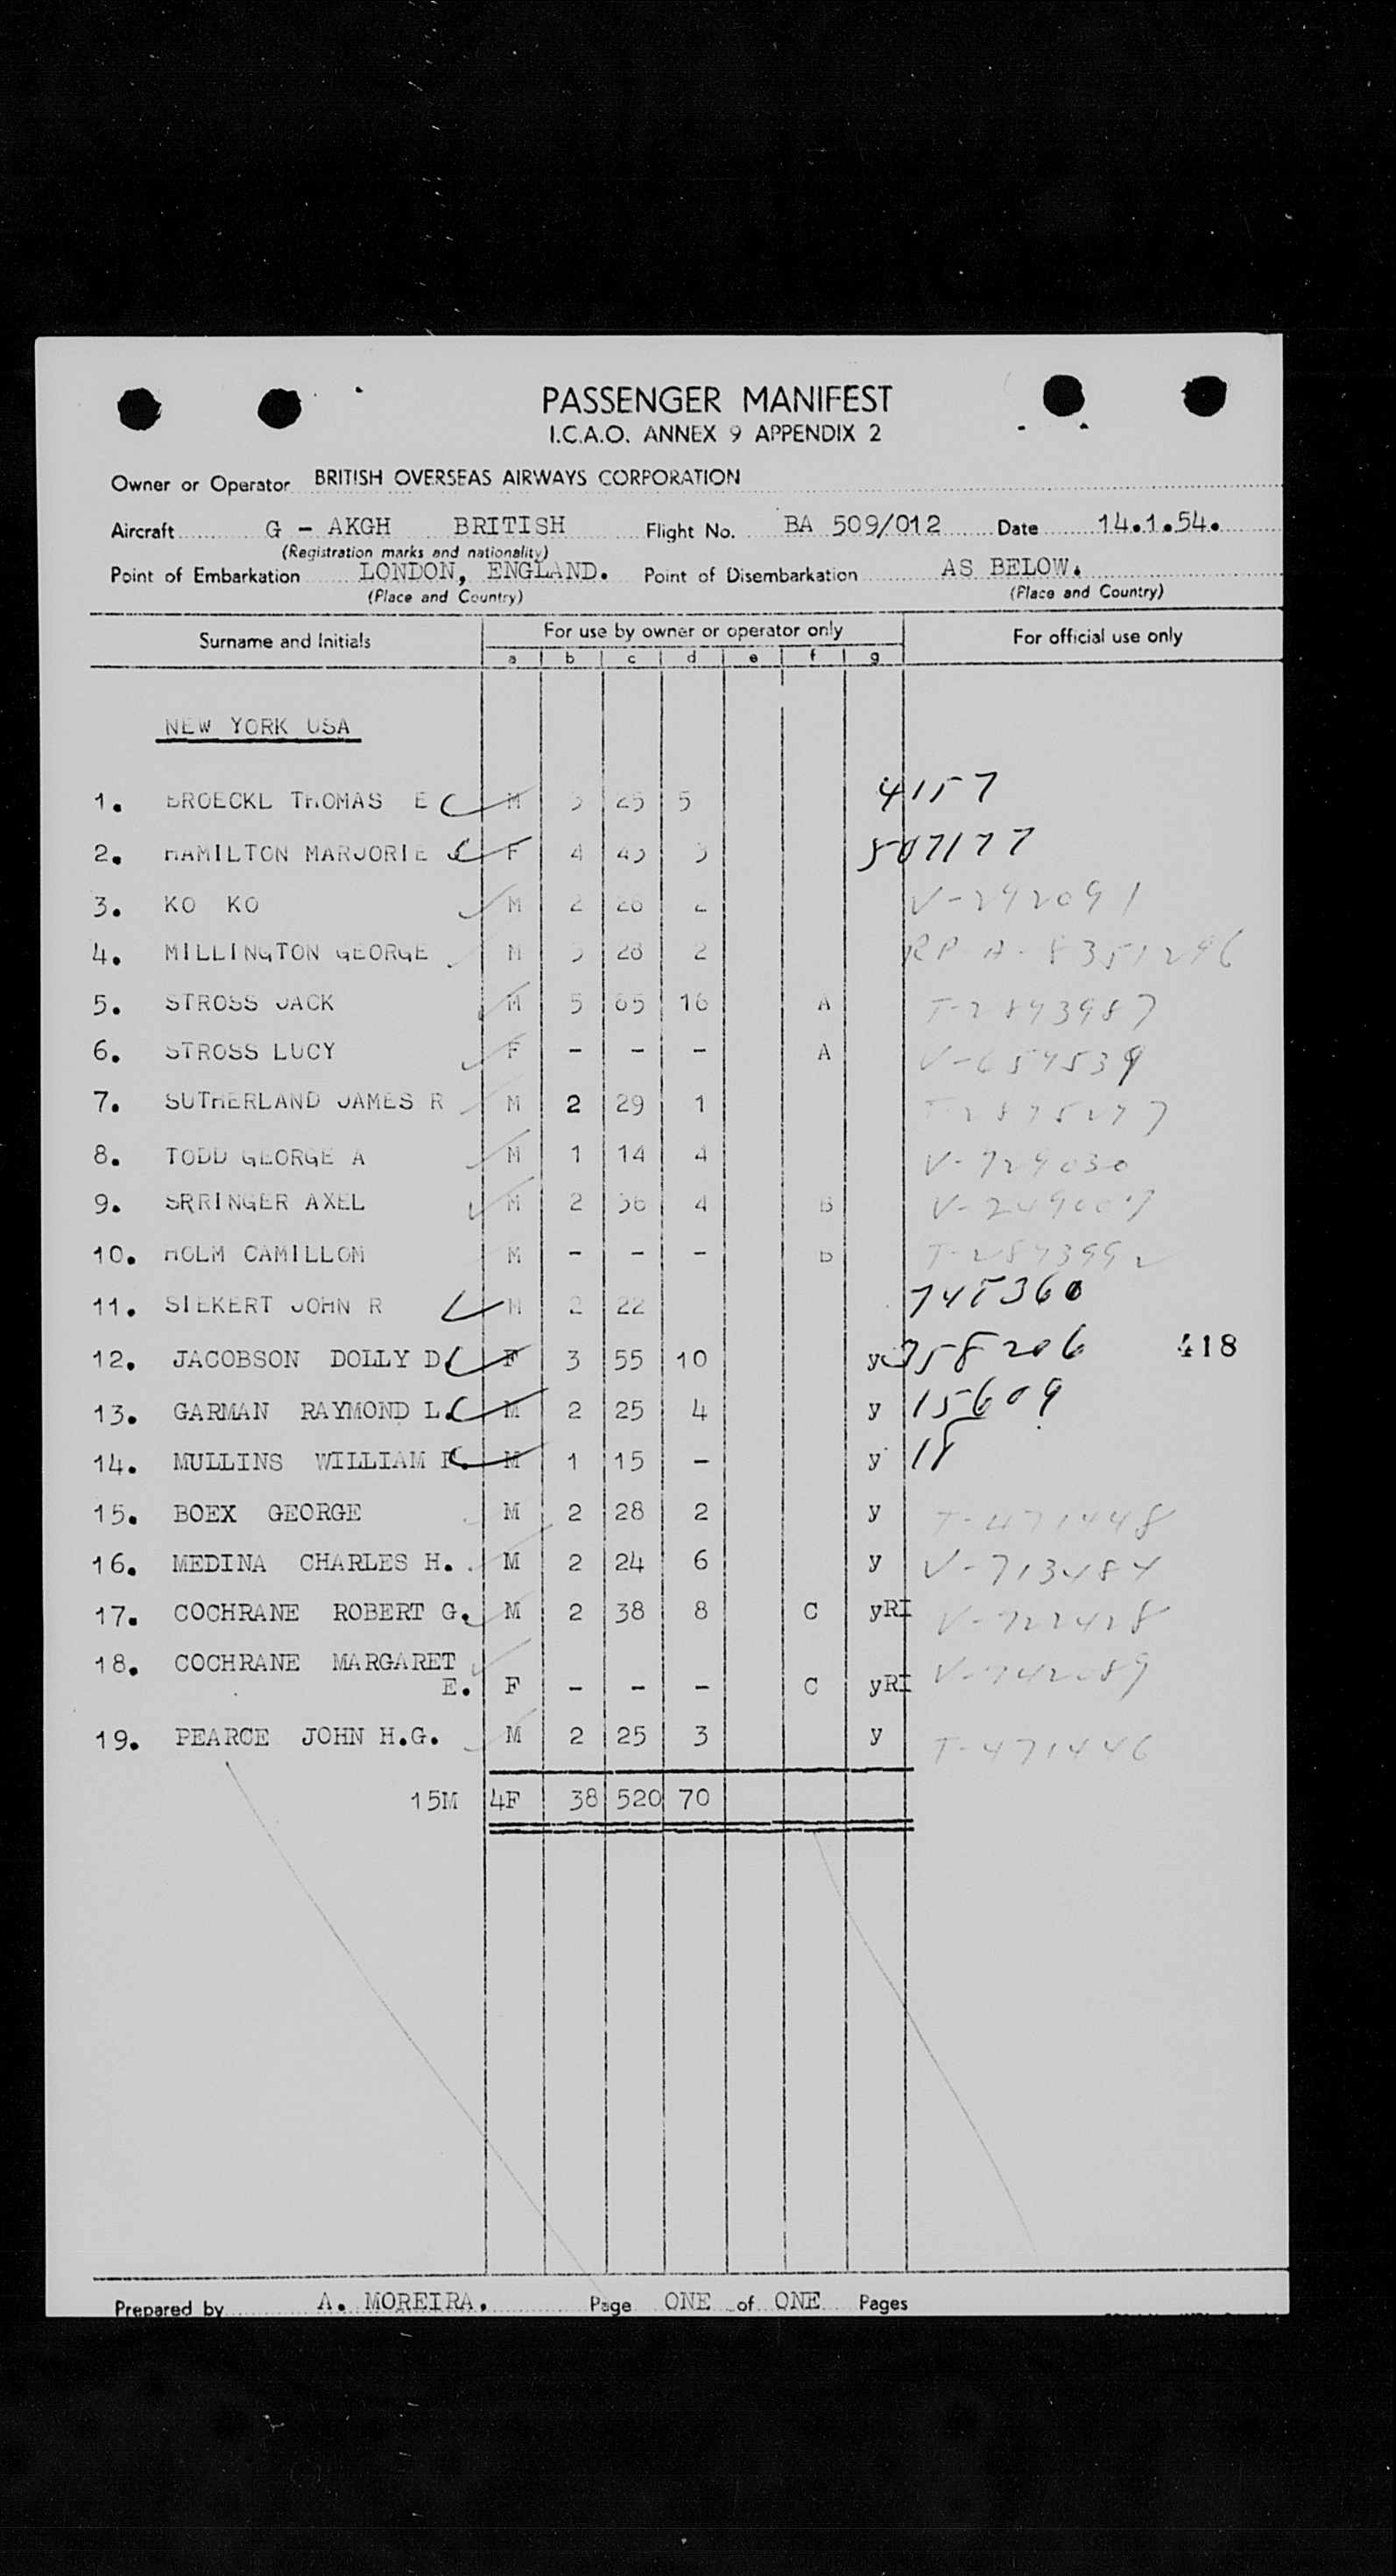 PASSENGER MANIFEST
I.C.A.O. ANNEX 9 APPENDIX 2
Owner or Operator BRITISH OVERSEAS AIRWAYS CORPORATION
Aircraft G - AKGH BRITISH Flight No. BA 509/012 Date 14.1.54.
(Registration marks and nationality)
Point of Embarkation LONDON, ENGLAND. Point of Disembarkation AS BELOW.
(Place and Country) (Place and Country)
Surname and Initials For use by owner or operator only For official use only
a b c d e f g
NEW YORK USA
1. BROECKL THOMAS E M 25 5 4157
2. HAMILTON MARJORIE F 4 507177
3. KO KO M 2 V-292091
4. MILLINGTON GEORGE M 28 2 RP A-8351296
5. STROSS JACK M 5 65 16 A T-2893987
6. STROSS LUCY F - - - A V-657539
7. SUTHERLAND JAMES R M 2 29 1
8. TODD GEORGE A M 1 14 4 V-729030
9. SRRINGER AXEL M 2 36 4 B
10. HOLM CAMILLOM M - - - B
11. SIEKERT JOHN R M 2 22 745360
12. JACOBSON DOLLY D. F 3 55 10 y 758206 418
13. GARMAN RAYMOND L. M 2 25 4 y 15609
14. MULLINS WILLIAM M 1 15 - y 18
15. BOEX GEORGE M 2 28 2 y T-471448
16. MEDINA CHARLES H. M 2 24 6 y V-713484
17. COCHRANE ROBERT G. M 2 38 8 C yRI V-722428
18. COCHRANE MARGARET
E. F - - - C yRI V-742089
19. PEARCE JOHN H.G. M 2 25 3 y T-471446
15M 4F 38 520 70
Prepared by A. MOREIRA. Page ONE of ONE Pages